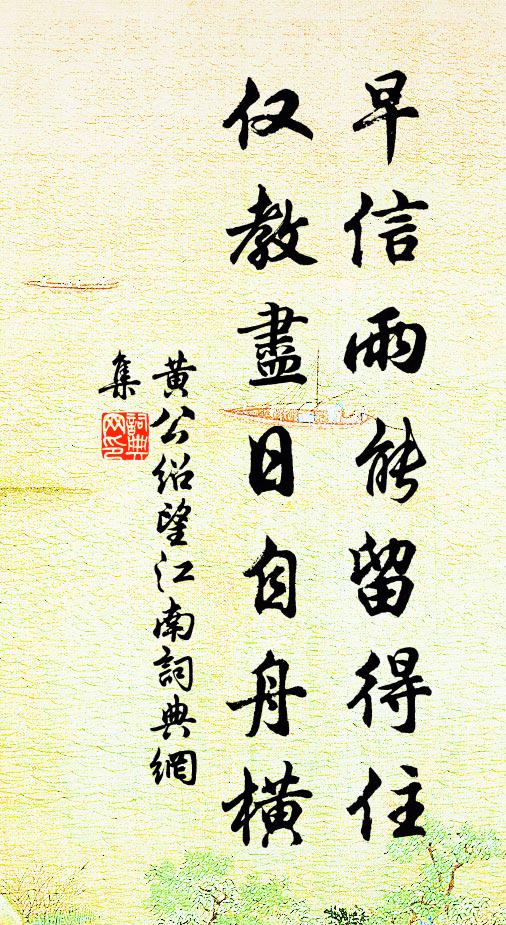 早信雨能留得住
仅教盡日自舟橫
黄公绍望江南詞典網
集
詞典
网印